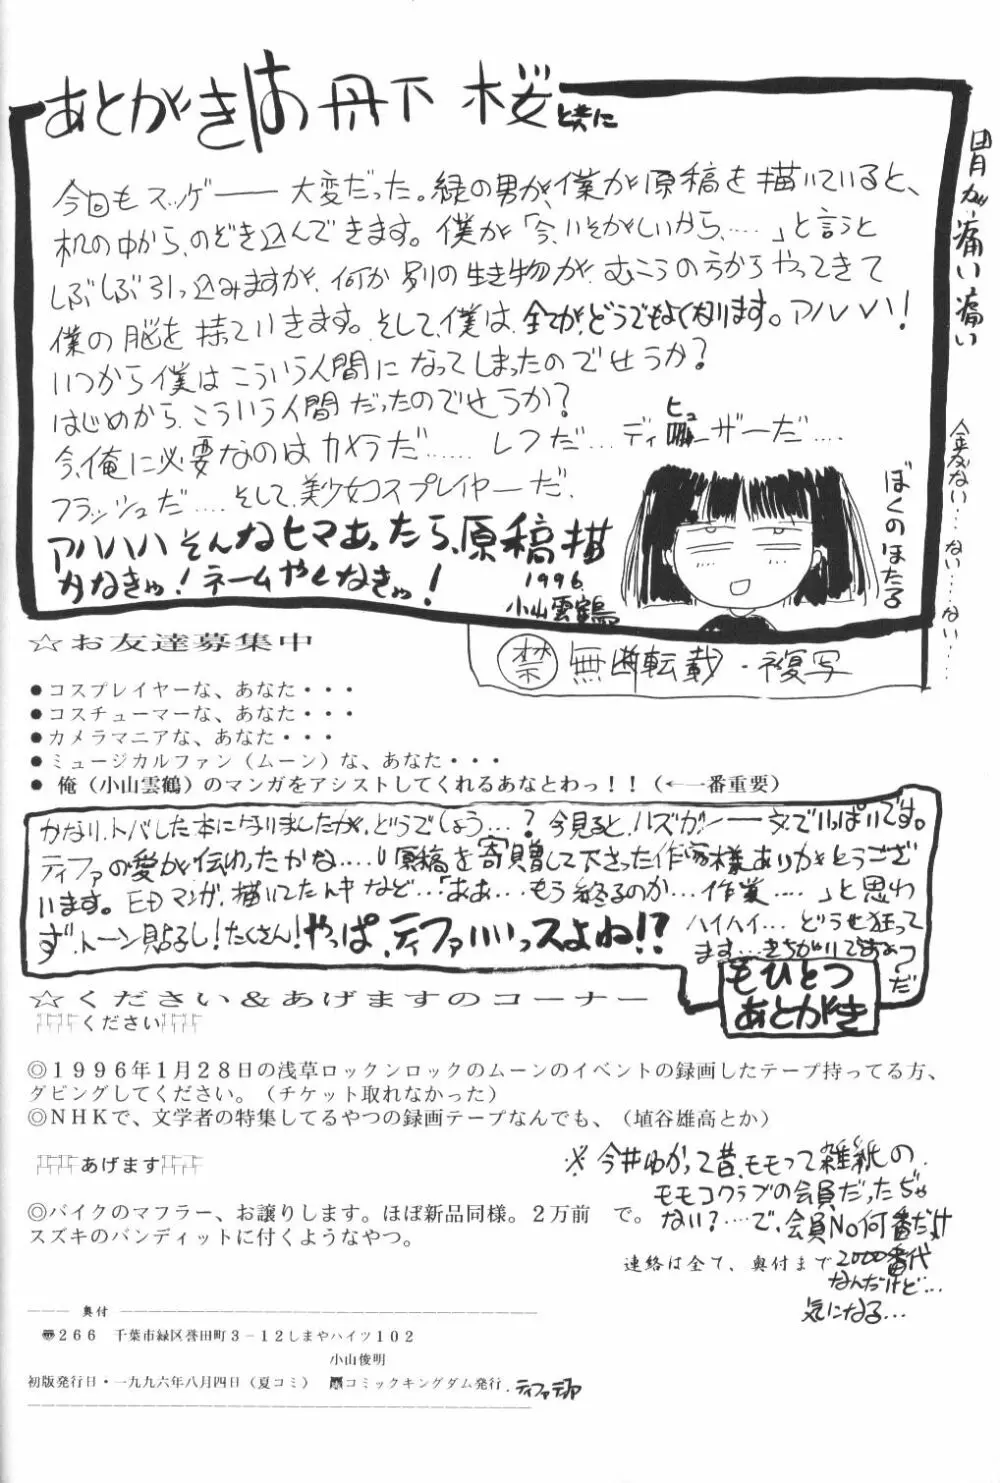 あとがきは丹下 桜と共に
今回もスッゲー―― 大変だった。緑の男が、僕が原稿を描いていると、
机の中から、のぞき込んできます。僕が「今、いそがしいから、‥‥」と言うと
しぶしぶ引っ込みますが、何か別の生き物が、むこうの方からやってきて
僕の脳を持っていきます。そして、僕は、全てが、どうでもよくなります。アハハハ!
いつから僕はこういう人間になってしまったのでせうか?
はじめから、こういう人間だったのでせうか?
今、俺に必要なのはカメラだ……レフだ…ディヒューザーだ….
フラッシュだ…. そして、美少女コスプレイヤーだ.
アハハハ そんなヒマあったら、原稿描
かなきゃ! ネームやんなきゃ!
1996
小山雲鶴
ぼくのほたる
胃が痛い痛い
金がない‥‥ない‥‥ない‥‥
禁 無断転載・複写
☆お友達募集中
●コスプレイヤーな、あなた・・・
●コスチューマーな、あなた・・・
●カメラマニアな、あなた・・・
●ミュージカルファン(ムーン)な、あなた・・・
●俺(小山雲鶴)のマンガをアシストしてくれるあなとわっ!!(←一番重要)
かなり、トバした本になりましたが、どうでしょう…? 今見ると、ハズカシ――文でいっぱいです。
ティファの愛が伝わったかな…. 原稿を寄贈して下さった作家様ありがとうござ
います。EDマンガ、描いてた時など…「ああ…もう終るのか…作業….」と思わ
ず、トーン貼るし!たくさん!やっぱ、ティファいいっスよね!?
ハイハイ…どうせ狂って
ます…きちがいですよつだ
もひとつ
あとがき
☆ください&あげますのコーナー
ください
◎1996年1月28日の浅草ロックンロックのムーンのイベントの録画したテープ持ってる方、
ダビングしてください。(チケット取れなかった)
◎NHKで、文学者の特集してるやつの録画テープなんでも、(埴谷雄高とか)
あげます
◎バイクのマフラー、お譲りします。ほぼ新品同様。2万前 で。
スズキのバンディットに付くようなやつ。
※今井ゆかって昔、モモって雑紙の
モモコクラブの会員だったぢゃ
ない?…で、会員No何番だっけ
2000番代
なんだけど…
気になる…
連絡は全て、奥付まで
奥付
〠266 千葉市緑区誉田町3-12しまやハイツ102
小山俊明
初版発行日・一九九六年八月四日(夏コミ) コミックキングダム発行.